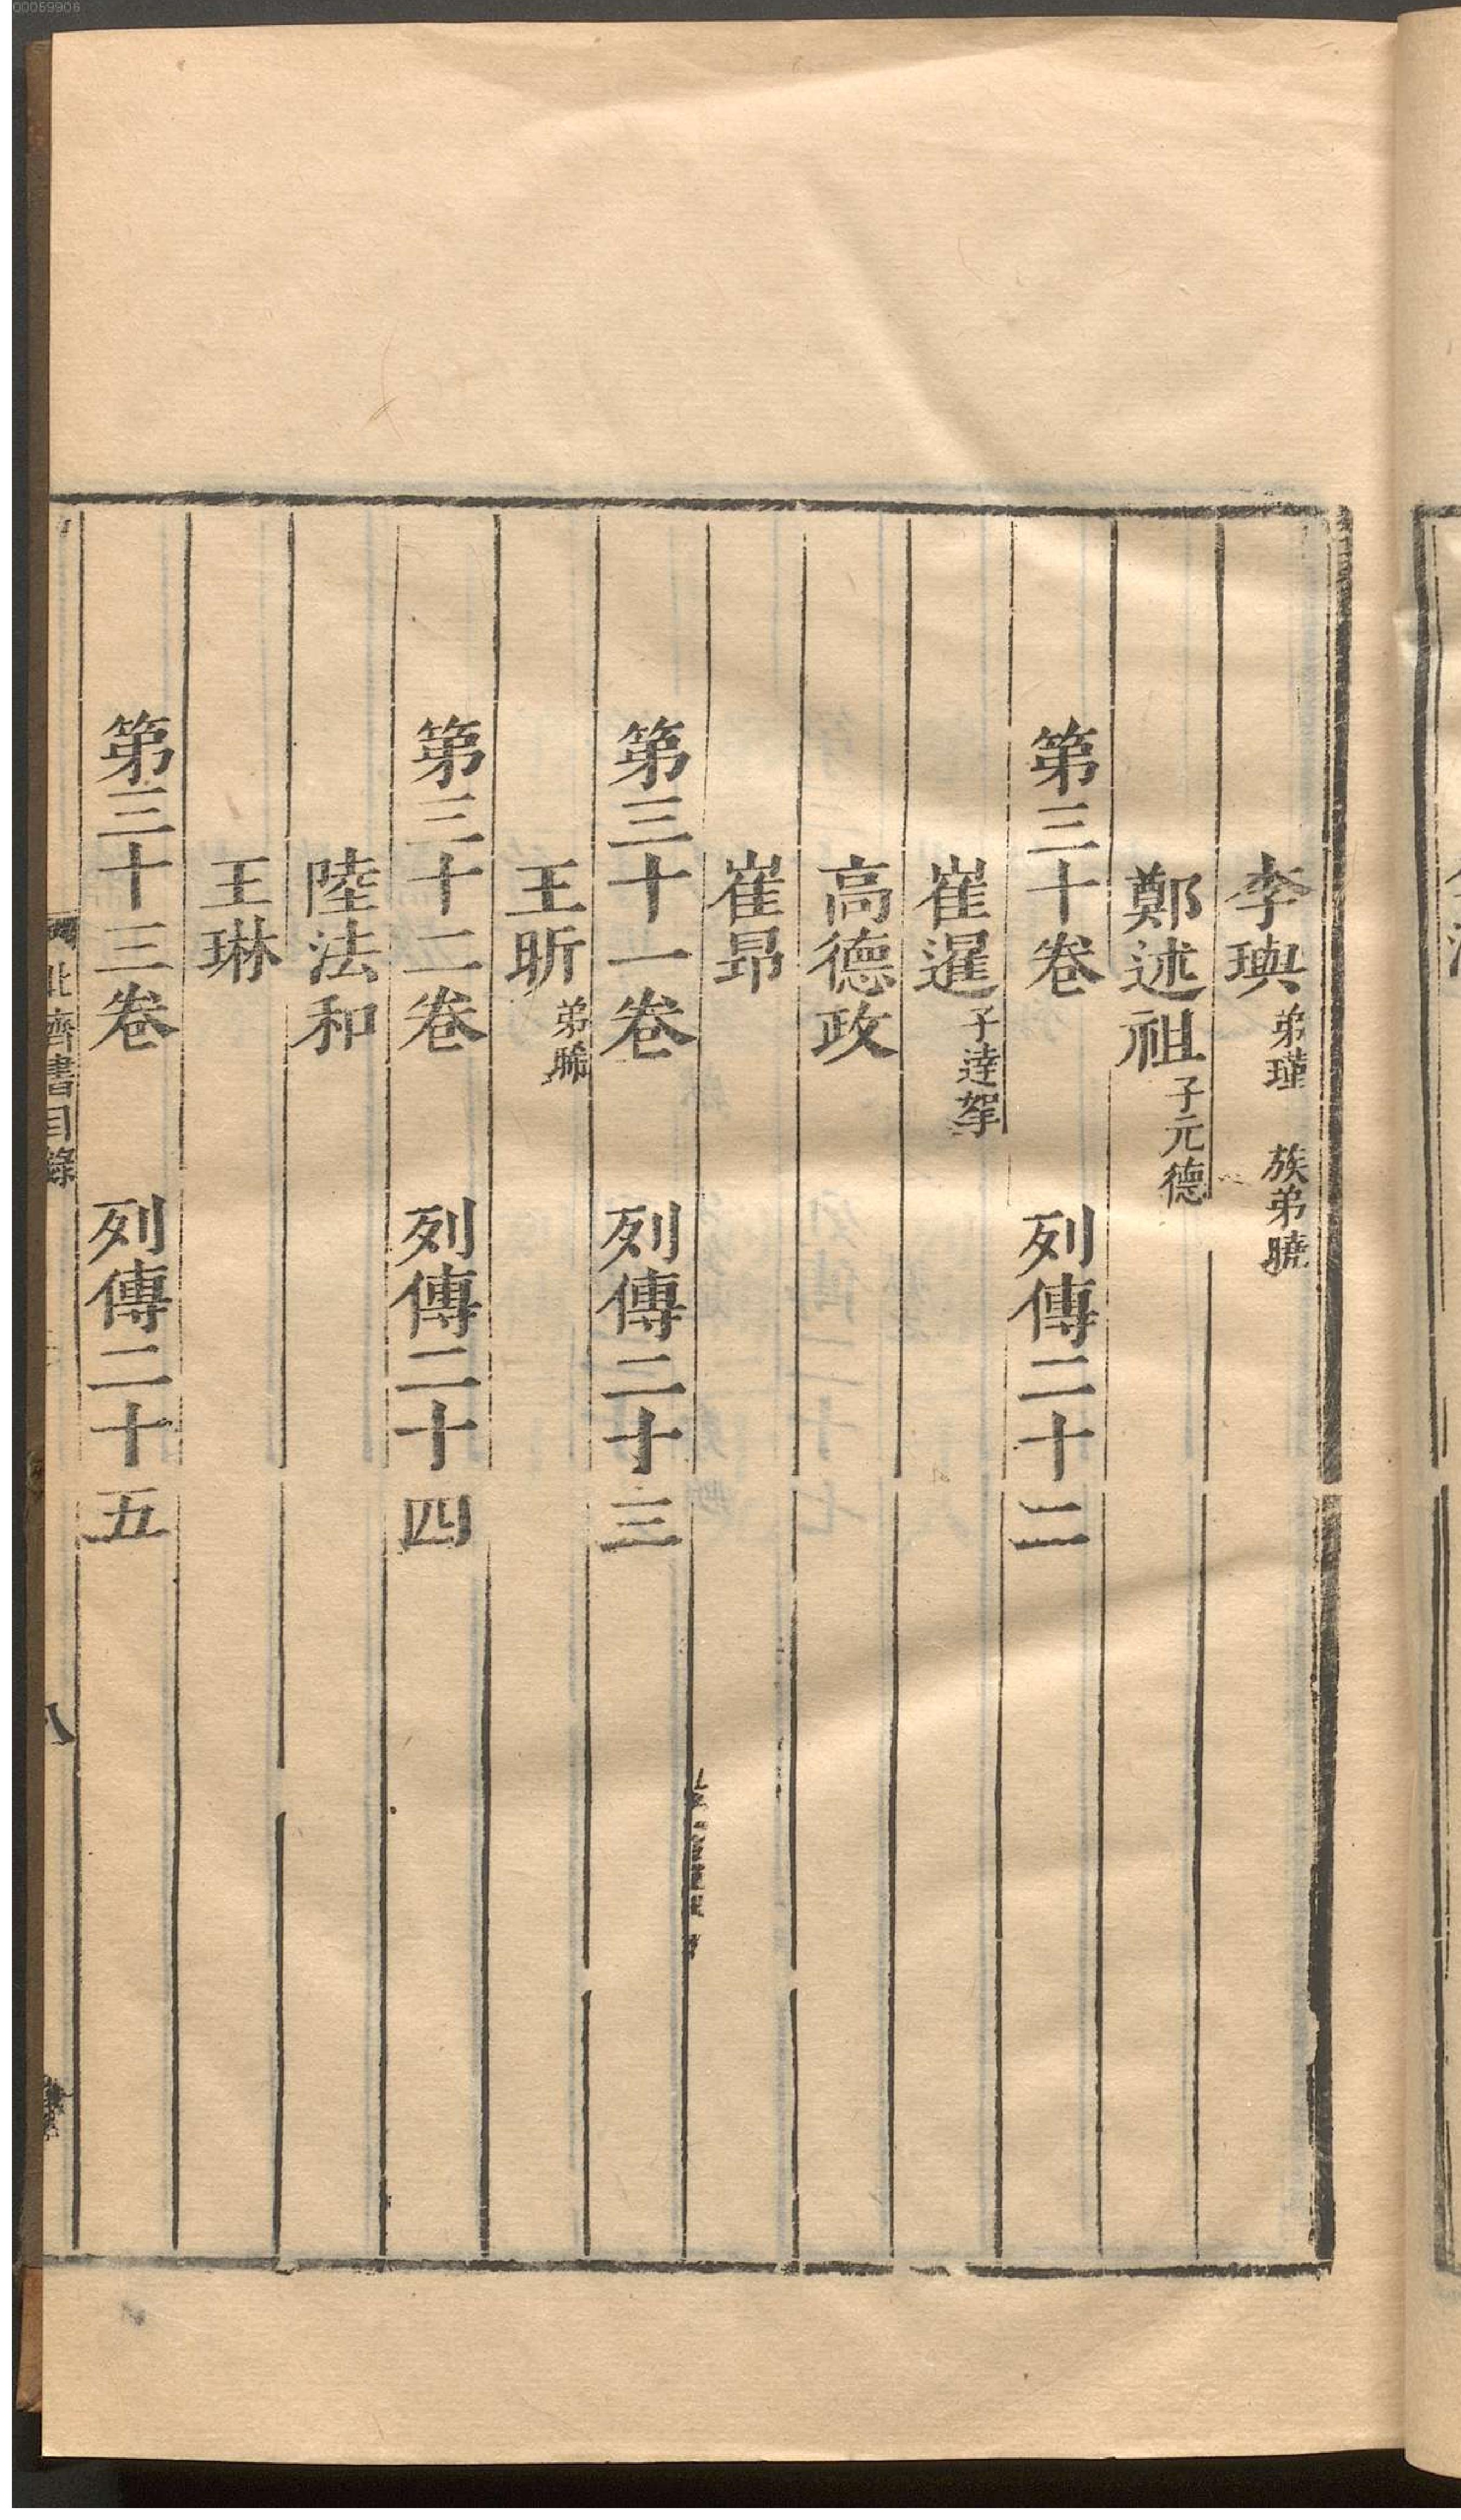 00059906
李璵弟瑾 族弟曉
鄭述祖子元德
第三十卷 列傳二十二
崔暹子達拏
高德政
崔昂
第三十一卷 列傳二十三
王昕弟晞
第三十二卷 列傳二十四
陸法和
王琳
第三十三卷 列傳二十五
北齊書目錄
八